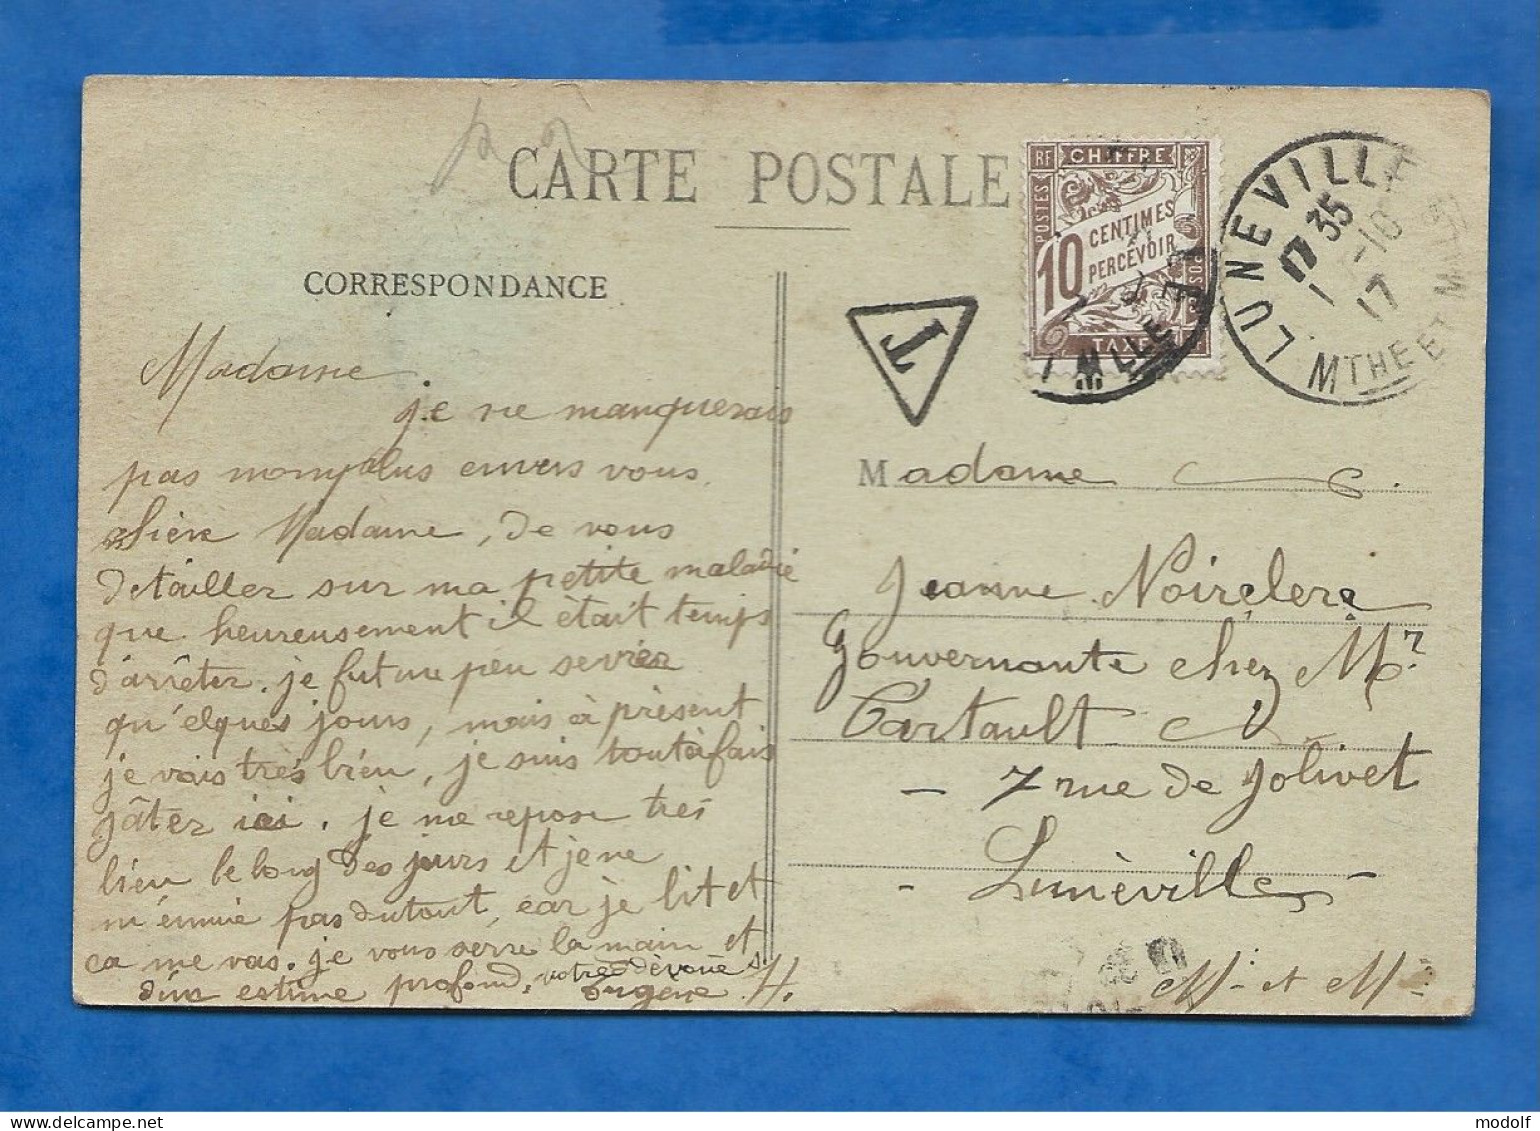 CARTE POSTALE
CORRESPONDANCE
RF CHIFFRE
POSTES
10 CENTIMES
PERCEVOIR
TAXE
T
LUNEVILLE
17 35
1 -10
17
MTHE ET M
Madame.
je ne manquerais
pas nomplus envers vous
chère Madame, de vous
detailler sur ma petite maladie
que heureusement il ètait temps
d'arrêter. je fut un peu
qu'elques jours, mais à présent
je vais très bien, je suis toutàfais
gâter ici. je me repose tres
bien le long des jours et je ne
m'ennuie pas dutout, car je lit et
ca me vas. je vous serre la main et
d'un estime profond. votre dèvouè
Eugène H.
Madame
Jeanne Noirclerc
Gouvernante chez Mr
Cartault
- 7 rue de Jolivet
- Lunèville -
M. et M.
modolf